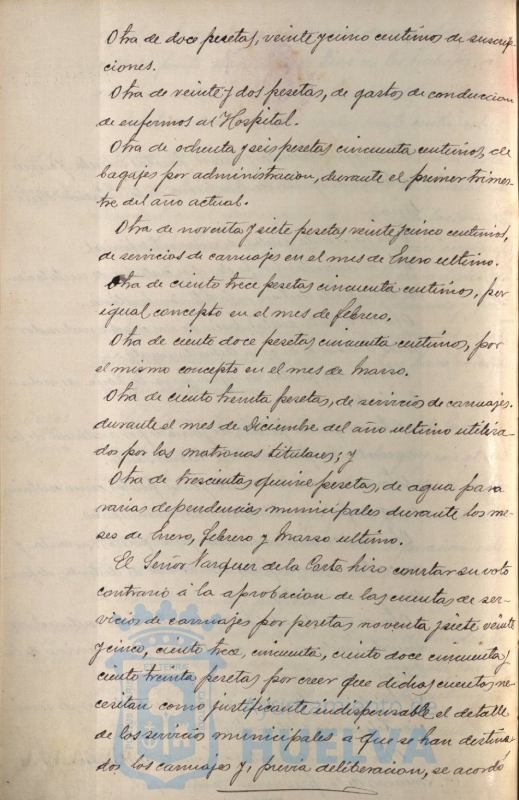 Otra de doce pesetas, veinte y cinco centimos de suscrip-
ciones.
Otra de veinte y dos pesetas, de gastos de conduccion
de enfermos al Hospital.
Otra de ochenta y seis pesetas cincuenta centimos, de
bagajes por administracion, durante el primer trimes-
tre del año actual.
Otra de noventa y siete pesetas veinte y cinco centimos,
de servicios de carruajes en el mes de Enero ultimo.
Otra de ciento trece pesetas cincuenta centimos, por
igual concepto en el mes de febrero.
Otra de ciento doce pesetas cincuenta centimos, por
el mismo concepto en el mes de Marso.
Otra de ciento treinta pesetas, de servicios de carruajes.
durante el mes de Diciembre del año ultimo utiliza-
dos por las matronas titulares; y
Otra de trescientas quince pesetas, de agua para
varias dependencias municipales durante los me-
ses de Enero, febrero y Marso ultimo.
El Señor Vazquez de la Corte hiso constar su voto
contrario á la aprobacion de las cuentas de ser-
vicios de carruajes por pesetas noventa y siete veinte
y cinco, ciento trece, cincuenta, ciento doce cincuenta y
ciento treinta pesetas por creer que dichas cuentas ne-
cesitan como justificante indispensable el detalle
de los servicios municipales a que se han destina-
dos los carruajes y, previa deliberacion, se acordó
HUELVA